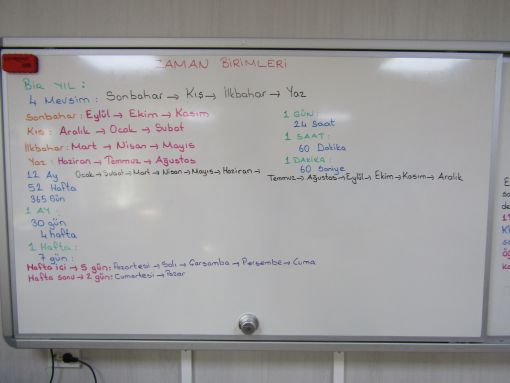 ZAMAN BİRİMLERİ
BİR YIL :
4 Mevsim : Sonbahar → Kış → İlkbahar → Yaz
Sonbahar : Eylül → Ekim → Kasım
Kış : Aralık → Ocak → Şubat
İlkbahar : Mart → Nisan → Mayıs
Yaz : Haziran → Temmuz → Ağustos
12 Ay Ocak → Şubat → Mart → Nisan → Mayıs → Haziran → Temmuz → Ağustos → Eylül → Ekim → Kasım → Aralık
52 Hafta
365 Gün
1 AY :
30 gün
4 hafta
1 Hafta :
7 gün :
Hafta içi → 5 gün : Pazartesi → Salı → Çarşamba → Perşembe → Cuma
Hafta sonu → 2 gün : Cumartesi → Pazar
1 GÜN :
24 Saat
1 SAAT :
60 Dakika
1 DAKİKA :
60 Saniye